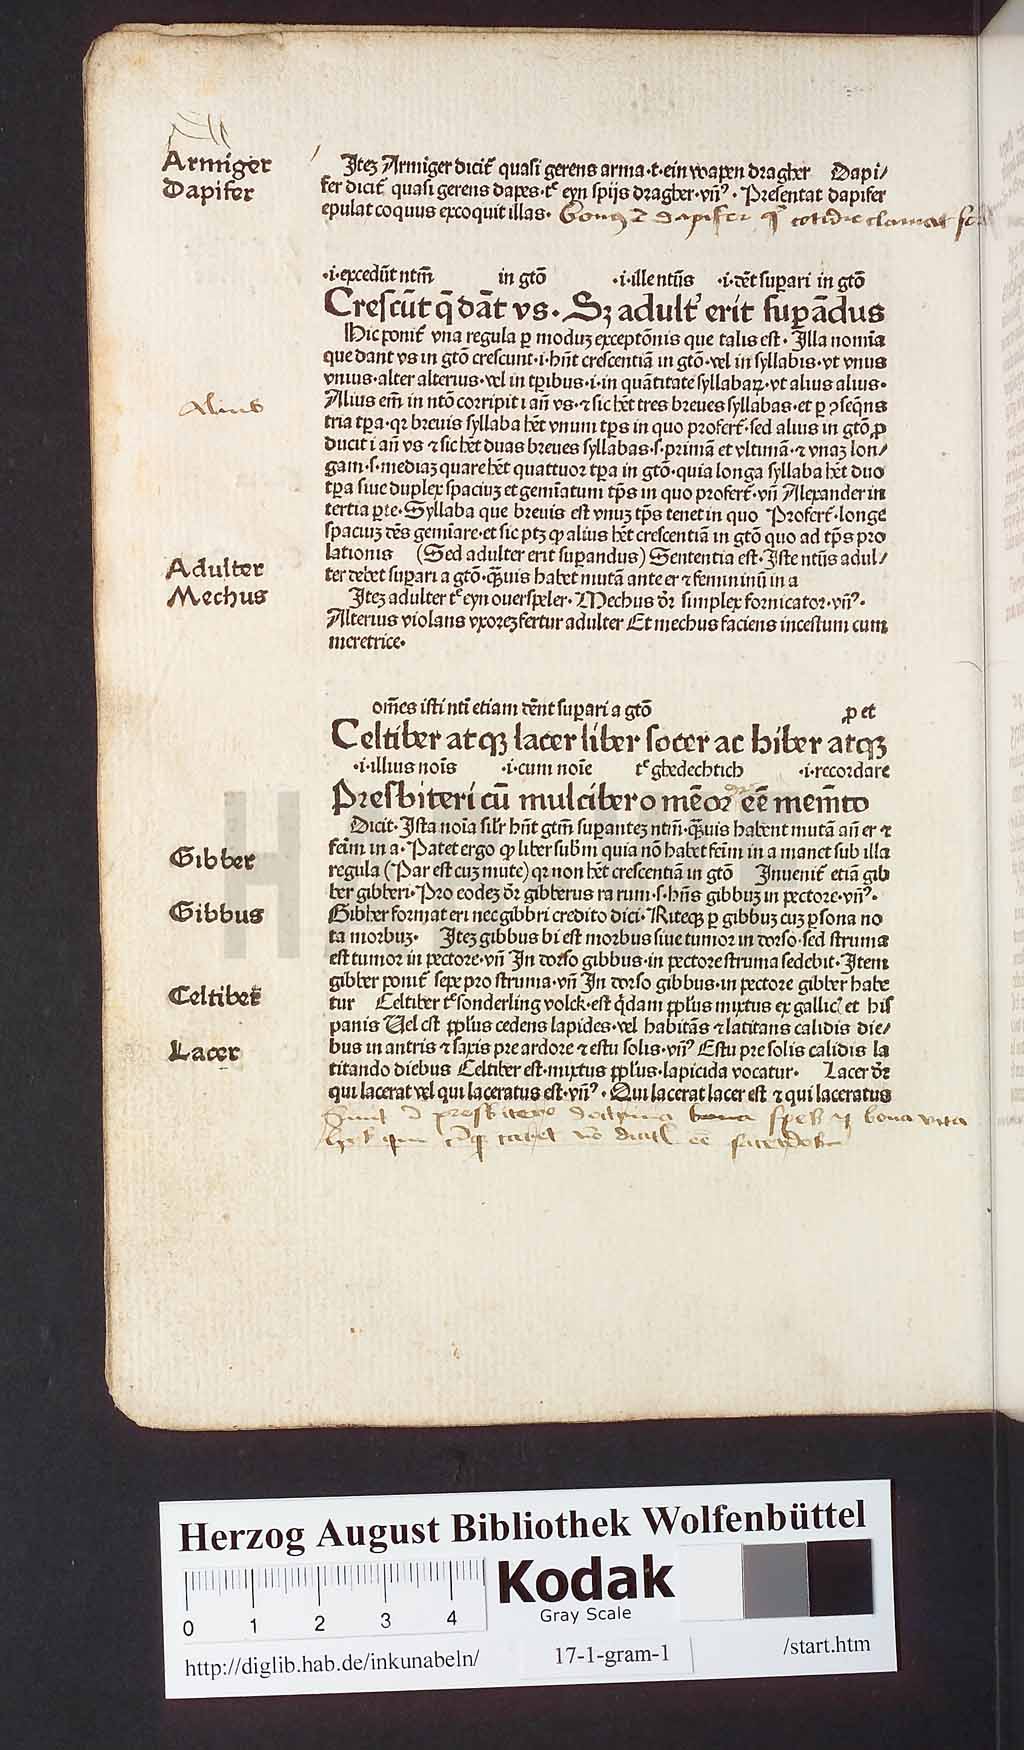 Armiger
Dapifer
Itez Armiger dicit᷑ quasi gerens arma·t·ein wapen dragher Dapi/
fer dicit᷑ quasi gerens dapes·tͨ eyn spijs dragher·vñꝰ· Presentat dapifer
epulat coquus excoquit illas·
·i·excedūt ntm̄ in gtō ·i·ille ntūs ·i·dēt suꝑari in gtō
Crescūt q̄ dāt vs· Sꝫ adult᷑ erit suꝑādus
Hic ponit᷑ vna regula ꝑ moduꝫ exceptōnis que talis est· Illa nomīa
que dant vs in gtō crescunt·i·hn̄t crescentiā in gtō·vel in syllabis·vt vnus
vnius·alter alterius·vel in tꝑibus·i·in quātitate syllabaꝝ·vt alius alius·
Alius
Alius em̄ in ntō corripit i an̄ vs·⁊ sic hēt tres breues syllabas·et ꝑ ꝯseq̄ns
tria tꝑa·qꝛ breuis syllaba hēt vnum tp̄s in quo profert᷑·sed alius in gtō ꝓ
ducit i an̄ vs ⁊ sic hēt duas breues syllabas·s·primā et vltimā·⁊ vnaꝫ lon/
gam·s·mediaꝫ quare hēt quattuor tꝑa in gtō·quia longa syllaba hēt duo
tꝑa siue duplex spaciuꝫ et gemīatum tp̄s in quo profert᷑·vñ Alexander in
tertia ꝑte·Syllaba que breuis est vnuꝫ tp̄s tenet in quo Profert᷑·longe
spaciuꝫ dēs gemīare·et sic ptꝫ ꝙ alius hēt crescentiā in gtō quo ad tp̄s pro
lationis (Sed adulter erit suꝑandus) Sententia est·Iste ntūs adul/
Adulter
ter debet suꝑari a gtō·q̄uis habet mutā ante er ⁊ femininū in a
Mechus
Itez adulter tͨ eyn ouerspeler·Mechus dr̄ simplex fornicator·vñꝰ·
Alterius violans vxoreꝫ fertur adulter Et mechus faciens incestum cum
meretrice·
om̄es isti ntī etiam dēnt suꝑari a gtō ꝓ et
Celtiber atqꝫ lacer liber socer ac hiber atqꝫ
·i·illius noīs ·i·cum noīe tͨ ghedechtich ·i·recordare
Presbiteri cū mulcibero mēor eē mem̄to
Dicit·Ista noīa silr̄ hn̄t gtm̄ suꝑanteꝫ ntm̄·q̄uis habent mutā an̄ er ⁊
Gibber
fem̄ in a·Patet ergo ꝙ liber subm̄ quia nō habet fem̄ in a manet sub illa
regula (Par est cuꝫ mute) qꝛ non hēt crescentiā in gtō Inuenit᷑ etiā gib
ber gibberi·Pro eodeꝫ dr̄ gibberus ra rum·s·hn̄s gibbuꝫ in pectore·vñꝰ·
Gibbus
Gibber format eri nec gibbri credito dici·Riteqꝫ ꝑ gibbuꝫ cuꝫ ꝑsona no
ta morbuꝫ· Itez gibbus bi est morbus siue tumor in dorso·sed struma
est tumor in pectore·vñ In dorso gibbus·in pectore struma sedebit·Item
gibber ponit᷑ sepe pro struma·vñ In dorso gibbus·in pectore gibber habe
Celtiber
tur Celtiber tͨ sonderling volck·est q̄dam ꝓplus mixtus ex gallic᷑ et his
panis Uel est ꝓplus cedens lapides·vel habitās ⁊ latitans calidis die/
Lacer
bus in antris ⁊ saxis pre ardore ⁊ estu solis·vñꝰ Estu pre solis calidis la
titando diebus Celtiber est·mixtus ꝓplus·lapicida vocatur· Lacer dr̄
qui lacerat vel qui laceratus est·vñꝰ· Qui lacerat lacer est ⁊ qui laceratus
Herzog August Bibliothek Wolfenbüttel
0 1 2 3 4
Kodak
Gray Scale
http://diglib.hab.de/inkunabeln/
17-1-gram-1
/start.htm